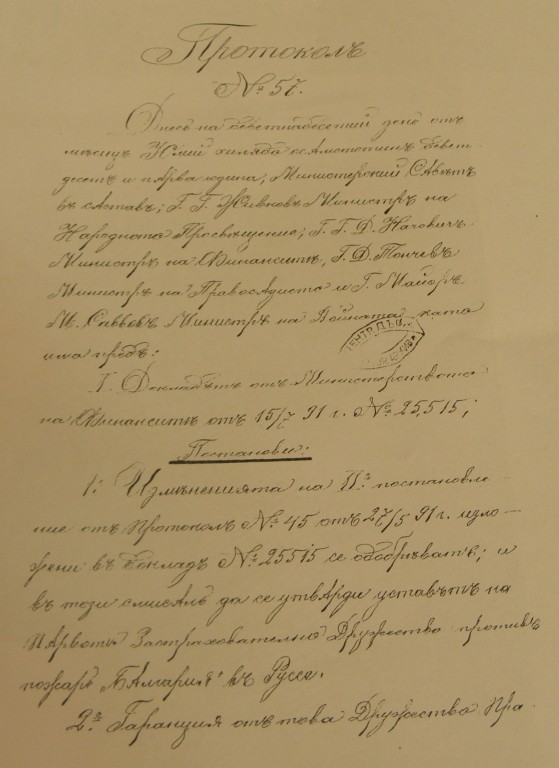 Протоколъ
№ 57.
Днесь на деветнадесетий день отъ
мѣсяцъ Юлий хиляда осѫмстотинъ девет-
десетъ и пѫрва година; Министерский Съвѣтъ
въ съставъ; Г. Г. Живковъ Министръ на
Народното Просвѣщение; Г. Г. Д. Начовичъ
Министръ на Финанситѣ, Г. Д. Тончевъ
Министръ на Правосѫдието и Г. Майоръ
М. Саввовъ Министръ на Войната като
има предъ:
I. Докладътъ отъ Министерството
на Финанситѣ отъ 15/7 91 г. № 25,515;
Постанови:
1: Измѣненията на II° постановле-
ние отъ протоколъ № 45 отъ 27/5 91 г. изло-
жени въ докладъ № 25515 се одобряватъ; и
въ този смисълъ да се утвърди уставътъ на
Първото Застрахователно Дружество противъ
пожаръ "България" въ Руссе.
2.° Гаранция отъ това Дружество Пра-